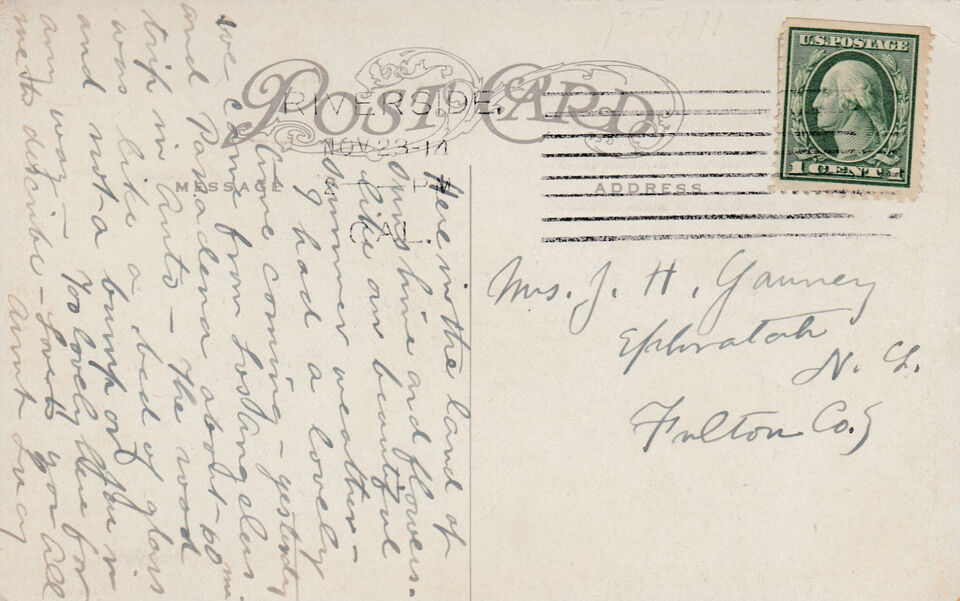 POST CARD
RIVERSIDE.
NOV 23-14
PM
CAL.
MESSAGE
ADDRESS
U.S. POSTAGE
1 CENT 1
Here in the land of
Sunshine and flowers.
like our beautiful
summer weather -
I had a lovely
time coming - yesterday
we came from Los Angeles
and Pasadena about 60 mi
trip in Auto - the road
was like a bed of glass
and not a bump or
any way - Too lovely here for
me to describe - Love to you all
Aunt
Mrs. J. H. Yauney
Ephratah
N. Y.
Fulton Co.